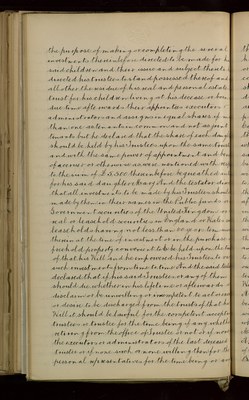 the purpose of making or completing the several
investments thereinbefore directed to be made for his
said children and their issue and subject thereto
directed his trustees to stand possessed thereof and
all other the residue of his real and personal estate In
trust for his children living at his decease or born in
due time afterwards their respective executors
administrators and assigns in equal shares if more
than one as tenants in common and not as joint
tenants but he declared that the share of each daughter
should be held by his trustees upon the same trusts
and with the same powers of appointment and
of or otherwise as were mentioned with respect
to the sum of £3,500 thereinbefore bequeathed in trust
for his said daughters Mary And the testator declared
that all investments to be made by his trustees should be
made by them in their names in the Public funds or
Government securities of the United Kingdom or on
real or leasehold securities in England or Wales such
leaseholds having not less than 60 years to run
therein at the time of investment or on the purchase of
freehold property or messuages to be held upon the trusts
of that his Will and he empowered his trustees to vary
such investments from time to time And the said testator
declared that if his said trustees or any of them
should die whether in his lifetime or afterwards or
disclaim or be unwilling or incompetent to act or should
or desire to be discharged from the trusts of that his
Will it should be lawful for the competent accepting
trustees or trustee for the time being if any whether
retiring from the office of trustee or not or if none for
the executors or administrators of the last deceased
trustee or if none such or none willing then for the
personal representatives for the time being or so